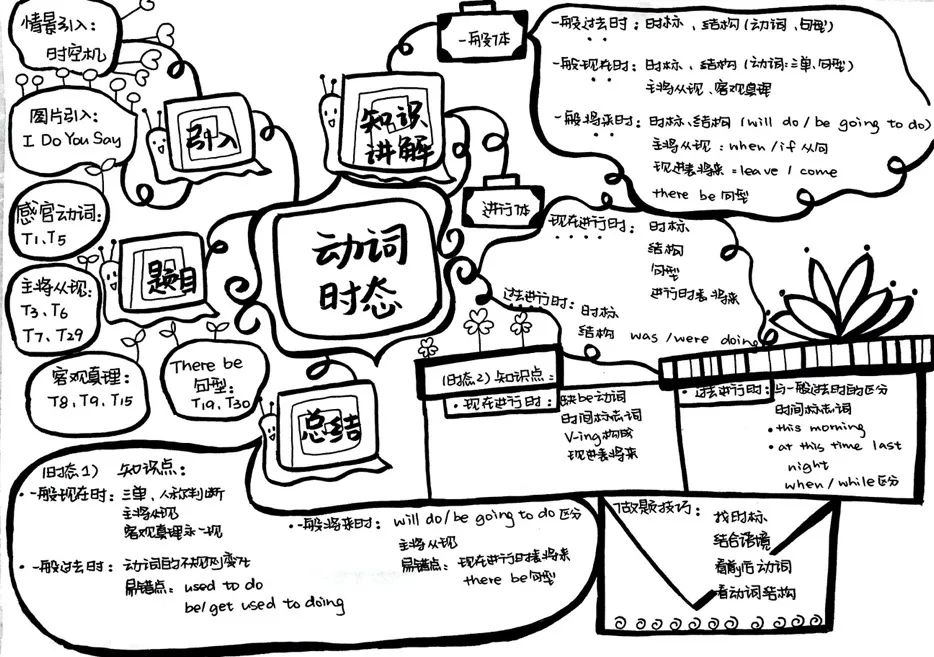 情景引入：
时空机
图片引入：
I Do You Say
引入
感官动词：
T1、T5
主将从现：
T3、T6
T7、T29
客观真理：
T8、T9、T15
There be
句型：
T19、T30
题目
知识
讲解
动词
时态
总结
一般体
一般过去时：时标、结构（动词、句型）
一般现在时：时标、结构（动词：三单、句型）
主将从现、客观真理
一般将来时：时标、结构（will do/be going to do）
主将从现：when/if从句
现进表将来=leave / come
there be句型
进行体
现在进行时：时标
结构
句型
进行时表将来
过去进行时：时标
结构 was/were doing
（时态2）知识点：
·现在进行时：缺be动词
时间标志词
V-ing构成
现进表将来
·过去进行时：与一般过去时的区分
时间标志词
•this morning
•at this time last
night
when/while区分
（时态1）知识点：
·一般现在时：三单、人称判断
主将从现
客观真理永一现
·一般过去时：动词的不规则变化
易错点：used to do
be/get used to doing
·一般将来时：will do/be going to do区分
主将从现
易错点：现在进行时表将来
there be句型
做题技巧：找时标
结合语境
看前后动词
看动词结构